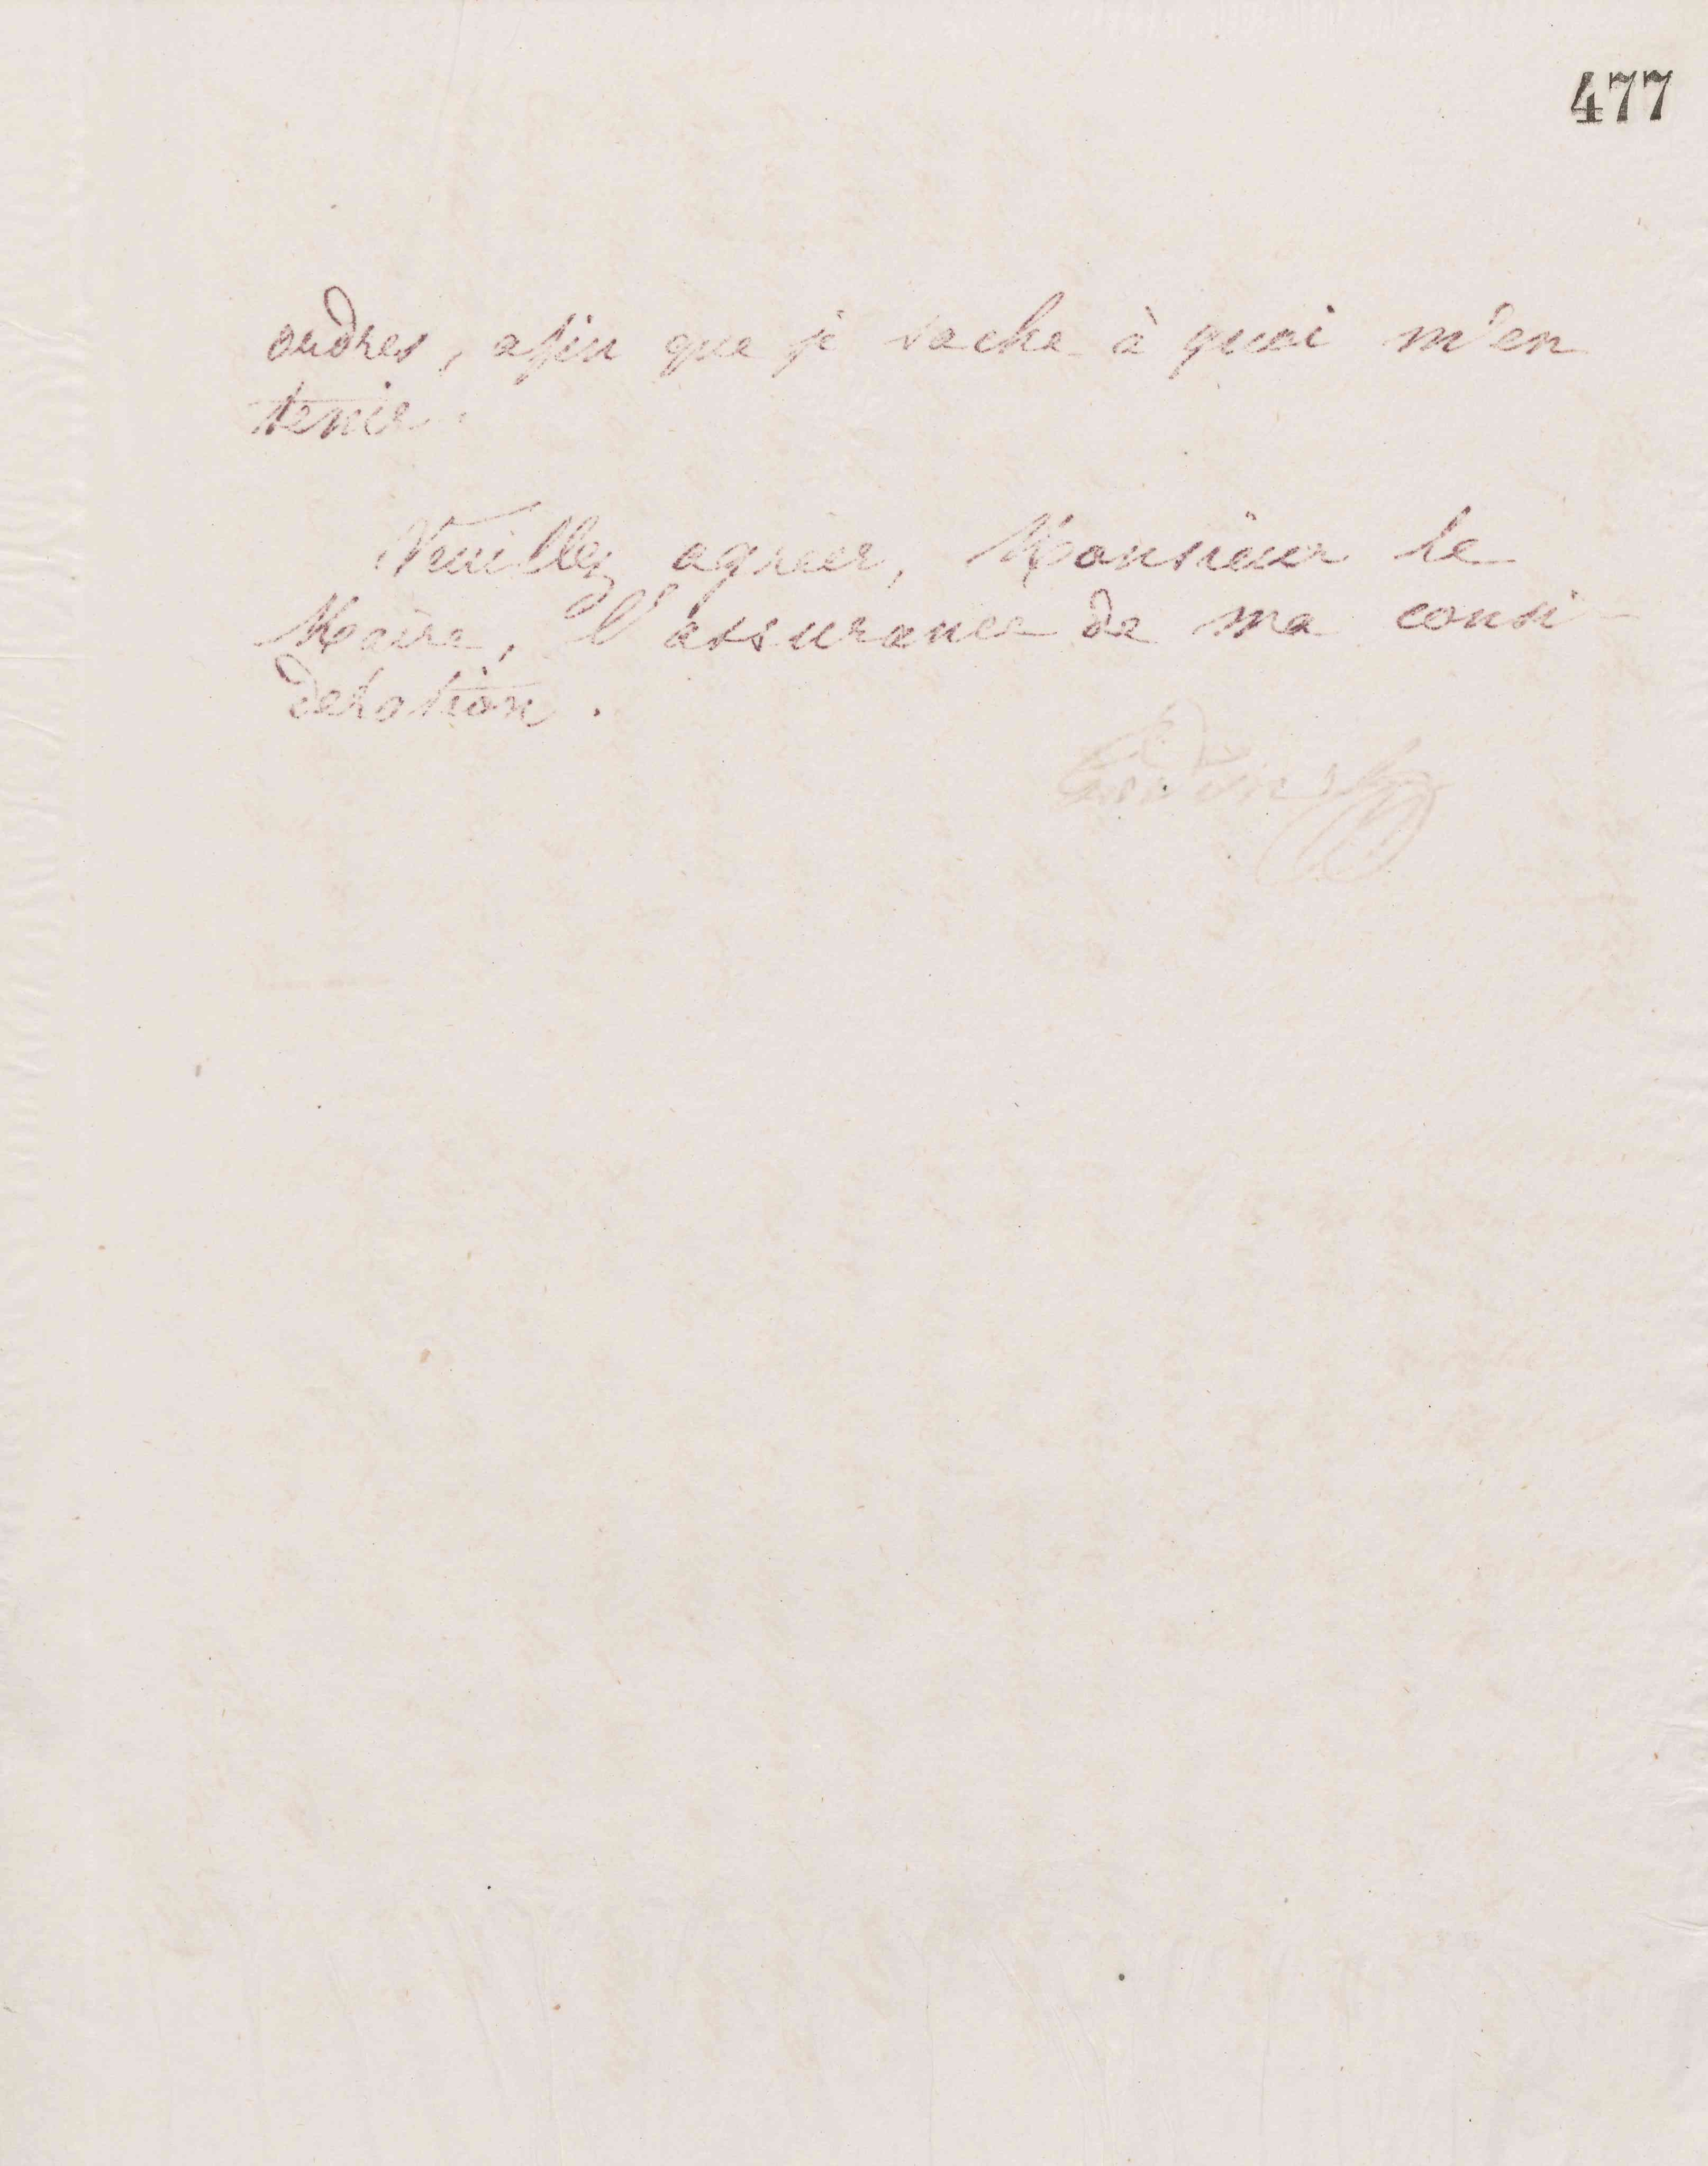 477
ordres, afin que je sache à quoi m'en
tenir.
Veuillez agréer, Monsieur le
Maire, l'assurance de ma consi-
deration.